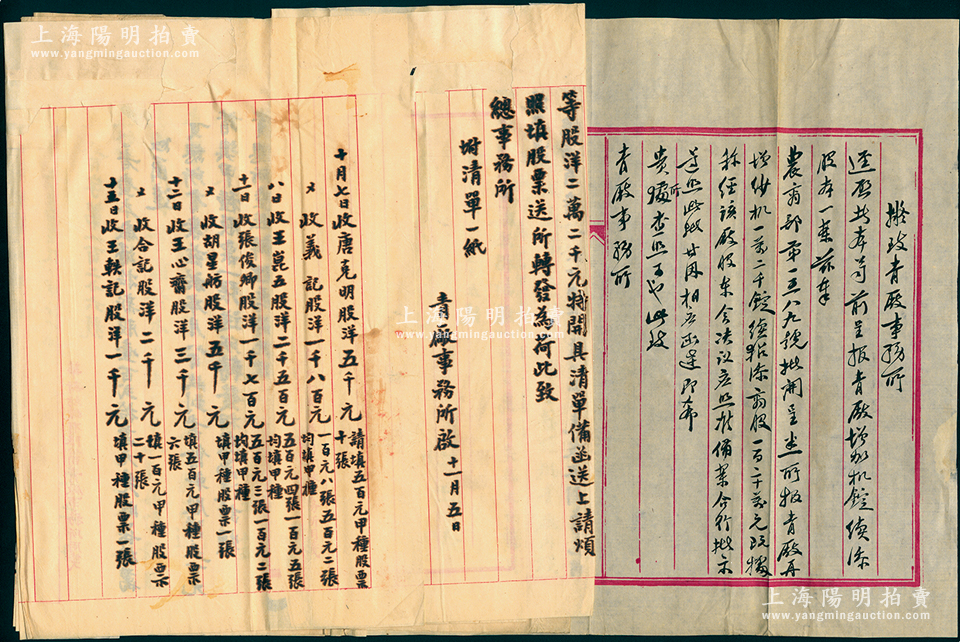 上海陽明拍賣
www.yangmingauction.com
擬致青廠事務所
逕啟者本公司前呈報青廠增加机錠續添
股本一案茲奉
農商部第一五八九號批開呈悉所報青廠再
增紗机一萬二千錠續招添新股一百二十萬元既據
称經該廠股東会决议应照准備案合行批示
遵照此批廿因相应函達即希
貴所查照可也此致
青廠事務所
等股洋二萬二千元特開具清單備函送上請煩
照填股票送所轉發為荷此致
總事務所
坿清單一紙
青廠事務所啟 十一月五日
十月七日收唐克明股洋五千元 請填五百元甲種股票
十張
〃 收義記股洋一千八百元 一百元八張五百元二張
均填甲種
八日收王崑五股洋二千五百元 五百元四張一百元五張
均填甲種
十一日收張俊卿股洋一千七百元 五百元三張一百元二張
均填甲種
〃 收胡星舫股洋五千元 填甲種股票一張
十二日收王心齋股洋三千元 填五百元甲種股票
六張
〃 收合記股洋二千元 填一百元甲種股票
二十張
十五日收王軼記股洋一千元 填甲種股票一張
上海陽明拍賣
www.yangmingauction.com
上海陽明拍賣
www.yangmingauction.com